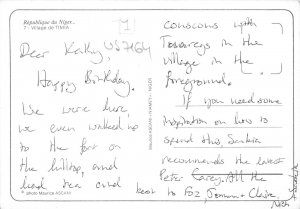 République du Niger...
7 - Village de TIMIA
1
US7164
Dear Kathy,
Happy Birthday.
We were here,
we even walked up
to the fort on
the hilltop, and
had tea and
© photo Maurice ASCANI
couscous with
Touaregs in the
village in the
foreground.
If you need some
inspiration on how to
spend this, Saskia
recommends the latest
Peter Carey. All the
best to Foz,